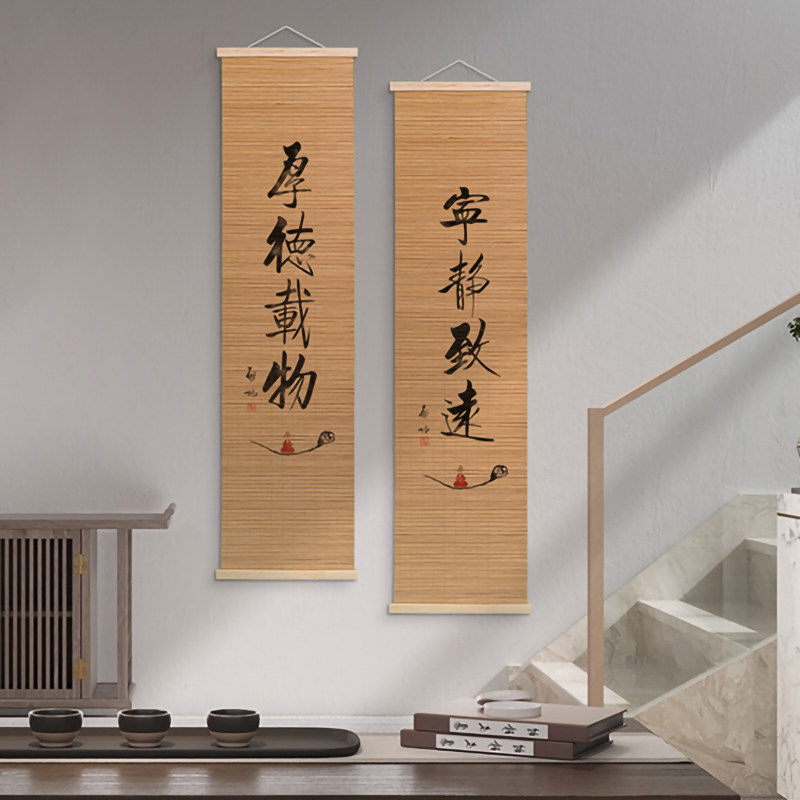 厚德載物
寧静致遠